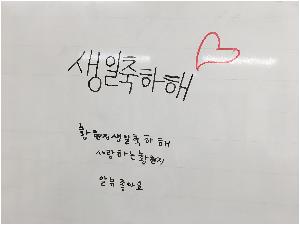 생일축하해
생일축하해
사랑하는
좋아요